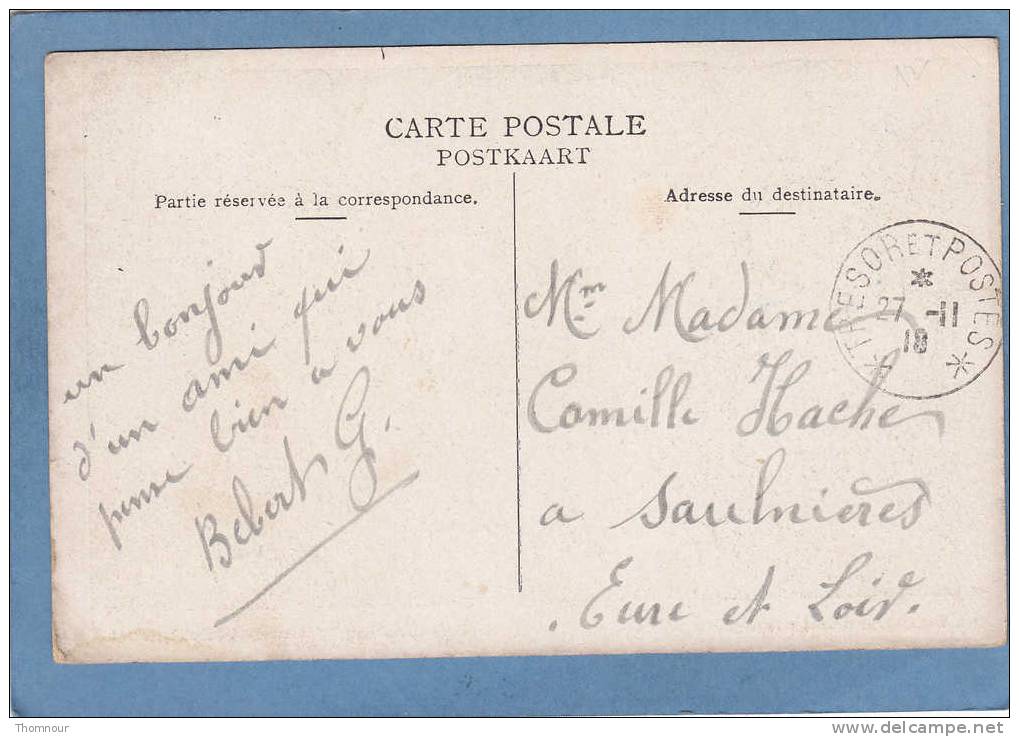 CARTE POSTALE
POSTKAART
Partie réservée à la correspondance.
un bonjour
d'un ami qui
pense bien a vous
Bebert G.
Adresse du destinataire.
TRESOR ET POSTES
27 -11
18
Mme Madame
Camille Hache
a Saulnieres
Eure et Loir.
Thomnour
www.delcampe.net